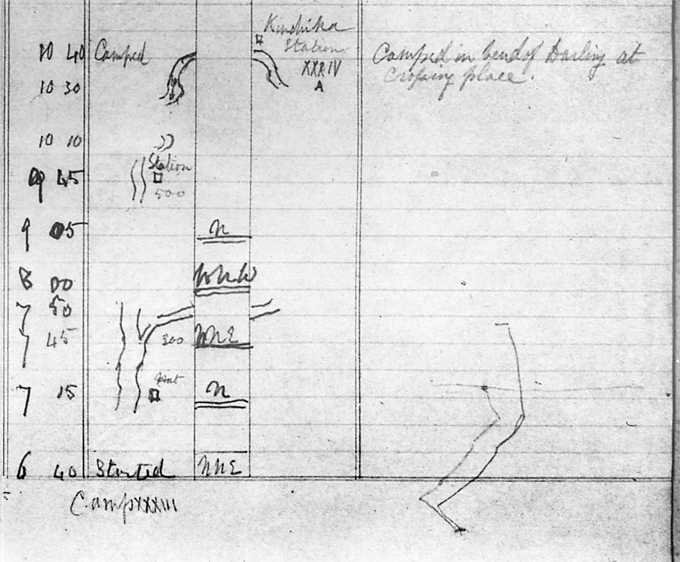 Kinchika
Station
XXXIV
A
10 40 Camped
Camped in bend of Darling at
Crossing place.
10 30
10 10
Station
9 45
500
9 05 N
8 00 WNW
7 50
7 45 300 NNE
Hut
7 15 N
6 40 Started NNE
Camp XXXIII